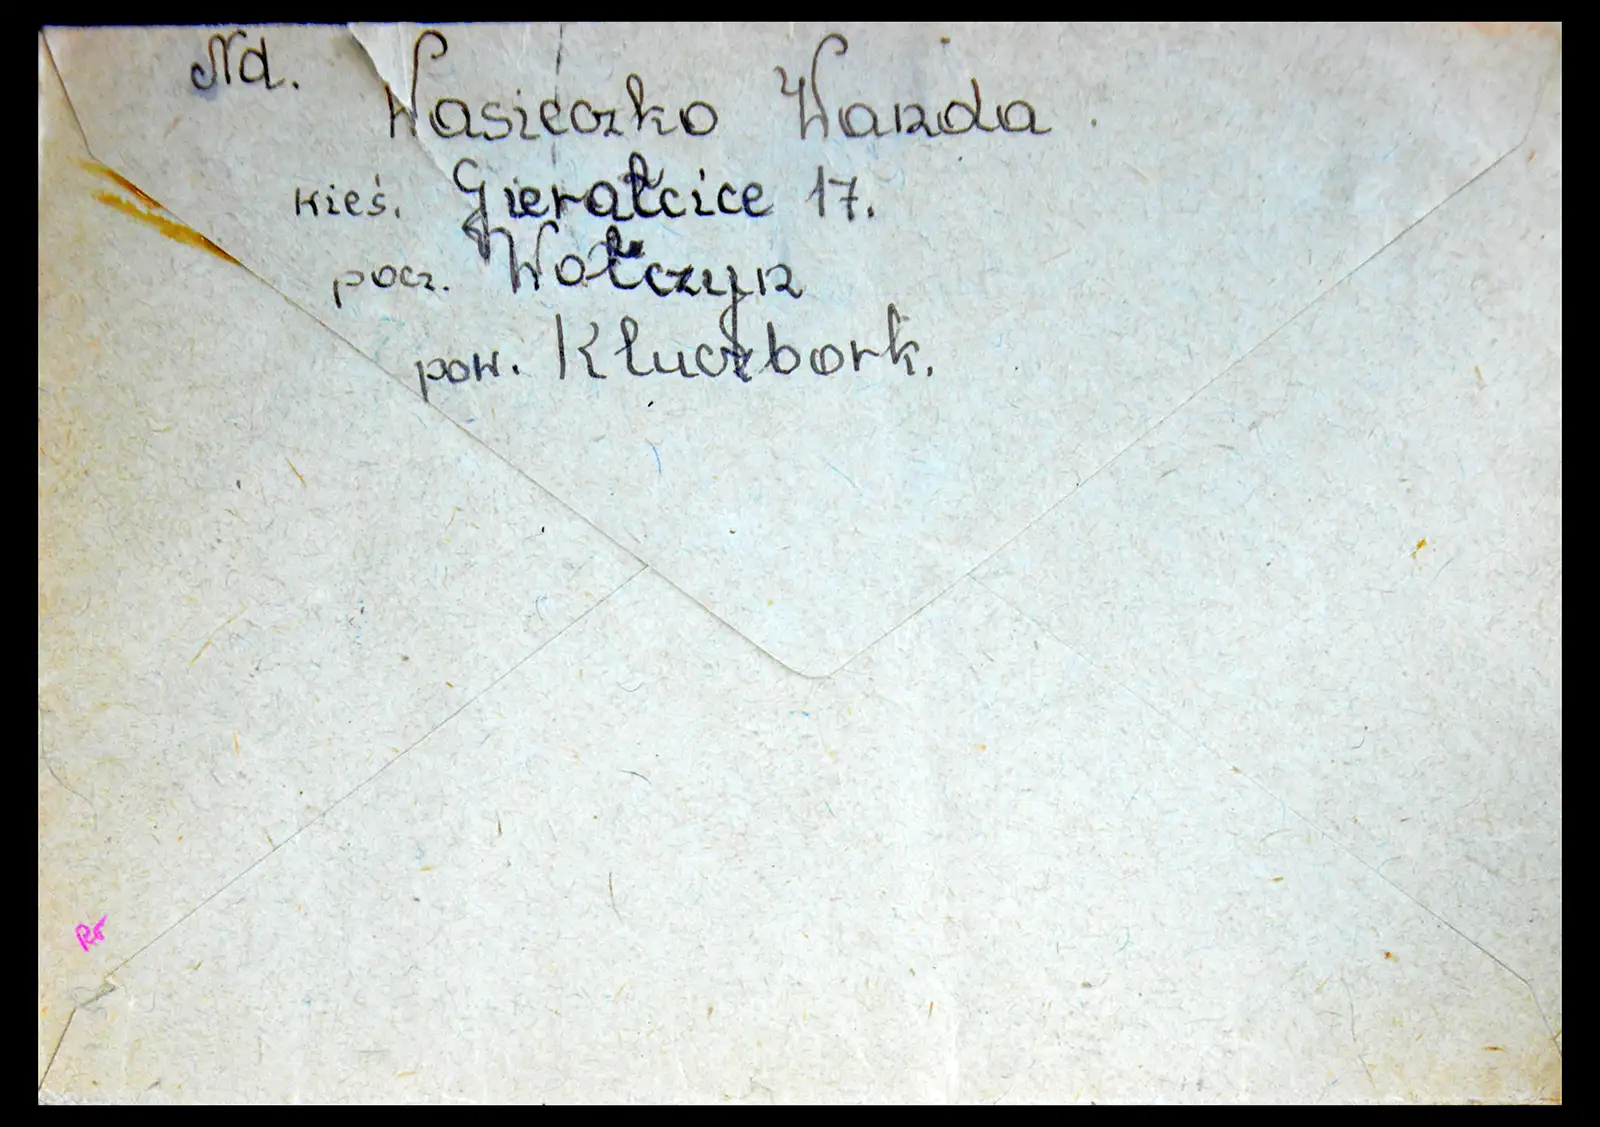 Nd.
Wasieczko Wanda.
wieś. Gierałcice 17.
pocz. Wołczyn
pow. Kluczbork.
RF